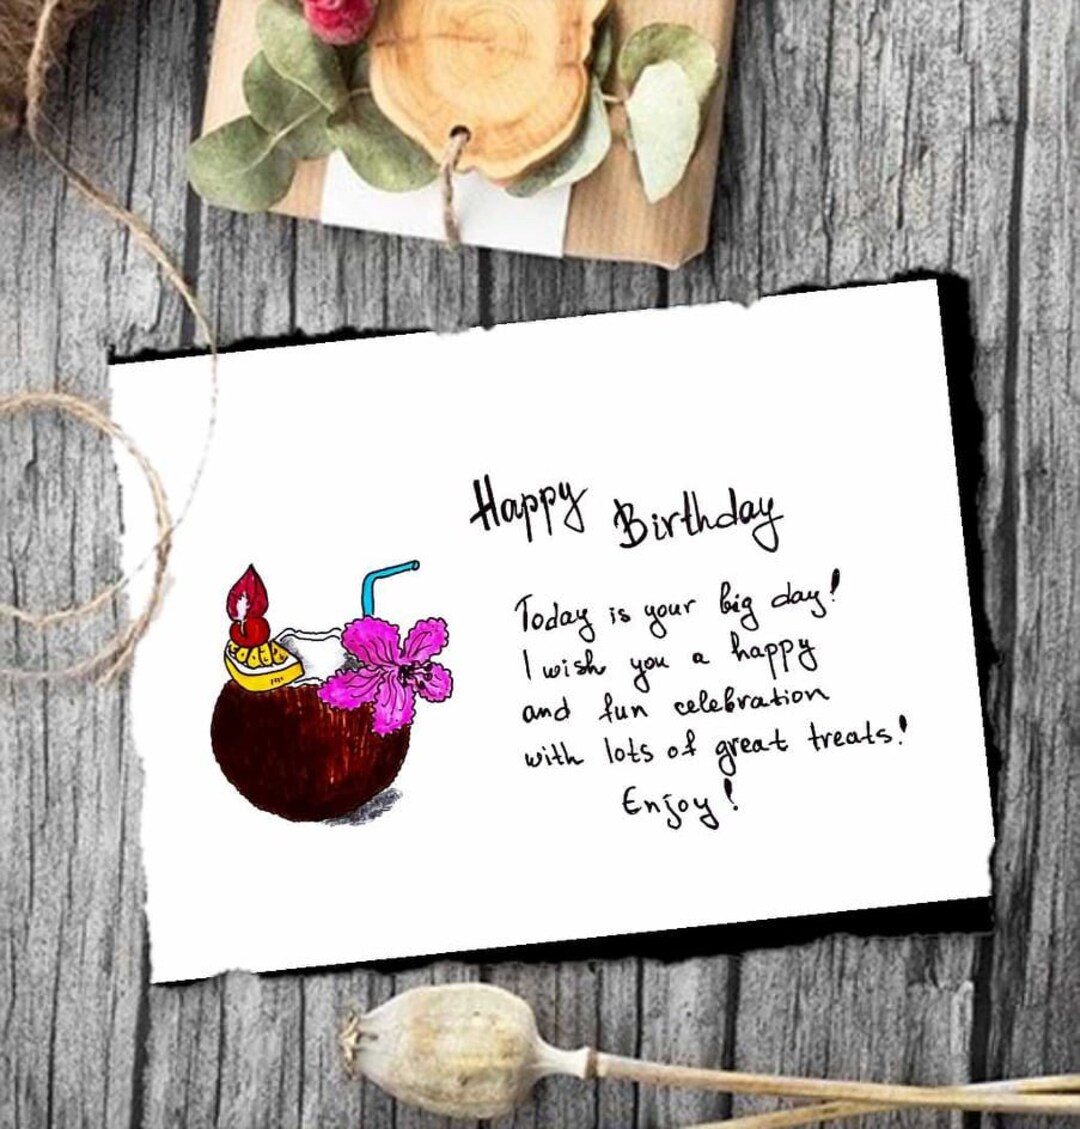 Happy Birthday
Today is your big day!
I wish you a happy
and fun celebration
with lots of great treats!
Enjoy!